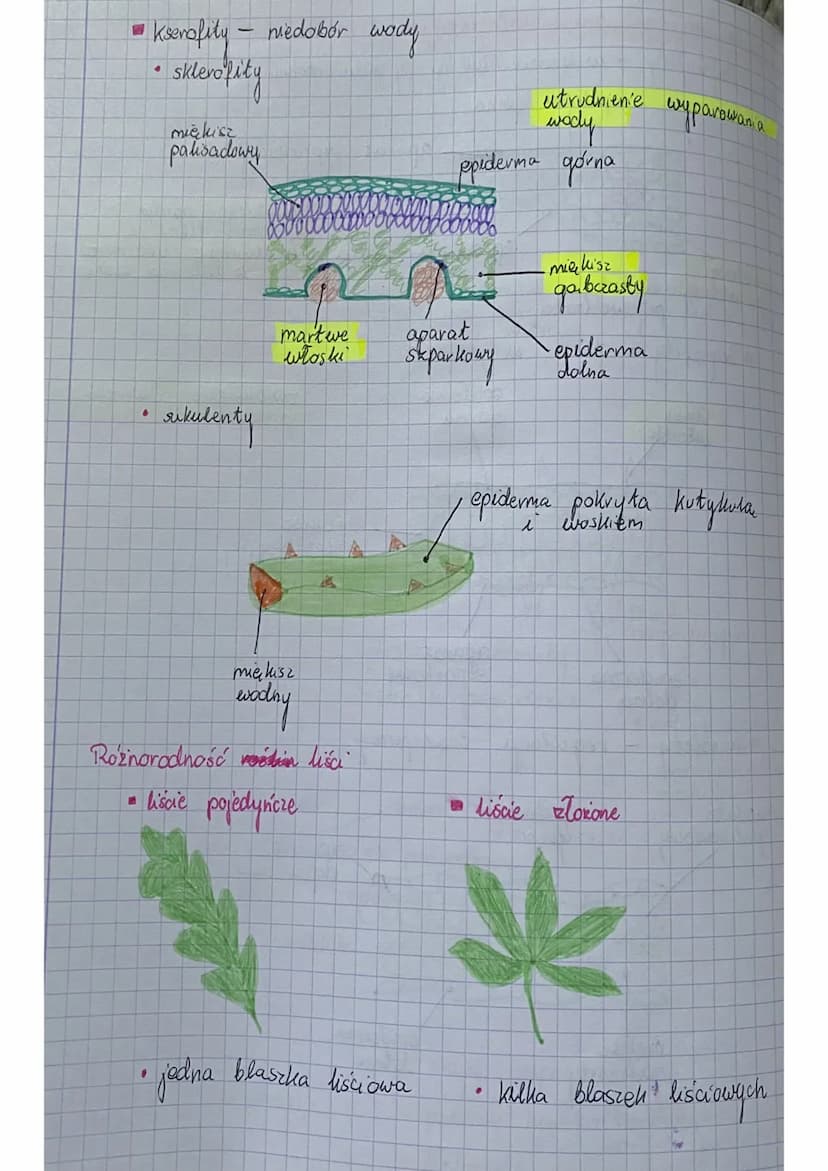 kserofity – niedobór wody
• sklerofity
utrudnienie wyparowania
wody
miękisz
palisadowy
epiderma górna
miękisz
gąbczasty
martwe
włoski
aparat
szparkowy
epiderma
dolna
• sukulenty
epiderma pokryta kutykulą
i woskiem
miękisz
wodny
Różnorodność liści
liście pojedyńcze
liście złożone
• jedna blaszka liściowa
• kilka blaszek liściowych